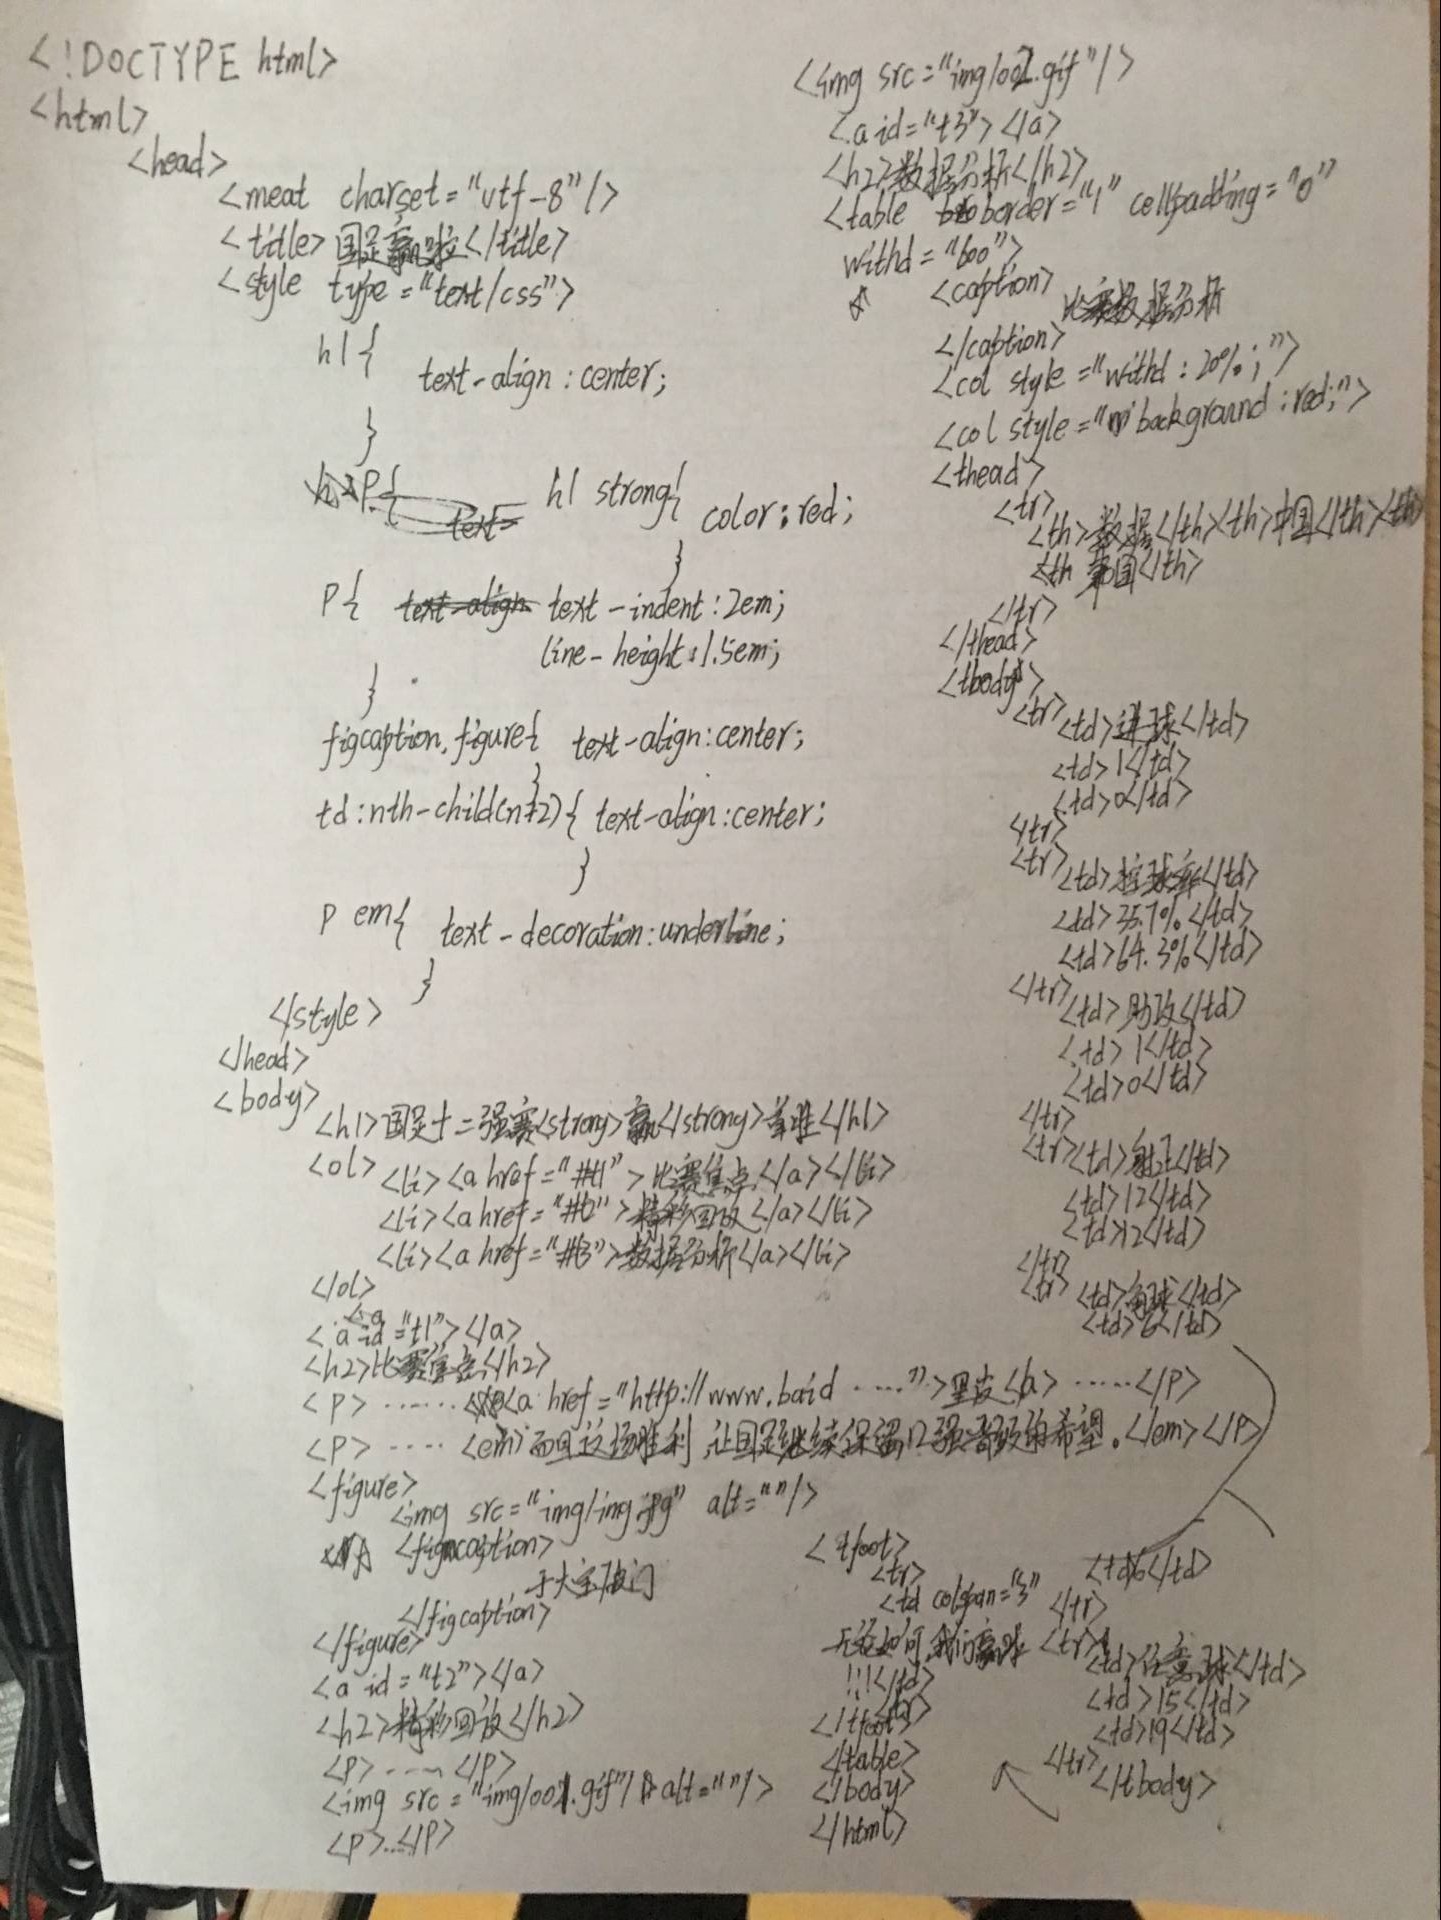 <!DOCTYPE html>
<html>
<head>
<meat charset="utf-8"/>
<title>国足赢啦</title>
<style type="text/css">
h1{
text-align:center;
}
h1 strong{ color:red;
}
p{ text-indent:2em;
line-height:1.5em;
}
figcaption,figure{ text-align:center;
}
td:nth-child(n+2){ text-align:center;
}
p em{ text-decoration:underline;
}
</style>
</head>
<body>
<h1>国足十二强赛<strong>赢</strong>首胜</h1>
<ol> <li><a href="#t1">比赛焦点</a></li>
<li><a href="#t2">精彩回放</a></li>
<li><a href="#t3">数据分析</a></li>
</ol>
<a id="t1"></a>
<h2>比赛焦点</h2>
<p>……<a href="http://www.baid……">里皮</a>……</p>
<p>……<em>而回这场胜利,让国足继续保留12强晋级的希望。</em></p>
<figure>
<img src="img/img.jpg" alt=""/>
<figcaption>
于大宝破门
</figcaption>
</figure>
<a id="t2"></a>
<h2>精彩回放</h2>
<p>……</p>
<img src="img/001.gif"/ alt=""/>
<p>……</p>
<img src="img/002.gif"/>
<a id="t3"></a>
<h2>数据分析</h2>
<table border="1" cellpadding="0"
withd="600">
<caption>
比赛数据分析
</caption>
<col style="withd:20%;">
<col style="background:red;">
<thead>
<tr>
<th>数据</th><th>中国</th><th>
<th 韩国</th>
</tr>
</thead>
<tbody>
<tr><td>进球</td>
<td>1</td>
<td>0</td>
</tr>
<tr>
<td>控球率</td>
<td>35.7%</td>
<td>64.3%</td>
</tr>
<td>助攻</td>
<td>1</td>
<td>0</td>
</tr>
<tr><td>射正</td>
<td>12</td>
<td>12</td>
</tr>
<tr> <td>角球</td>
<td>6</td>
<td>6</td>
</tr>
<tr>
<td>任意球</td>
<td>15</td>
<td>19</td>
</tr>
</tbody>
<tfoot>
<tr>
<td colspan="3"
无论如何,我们赢球
!!!</td>
</tr>
</tfoot>
</table>
</body>
</html>